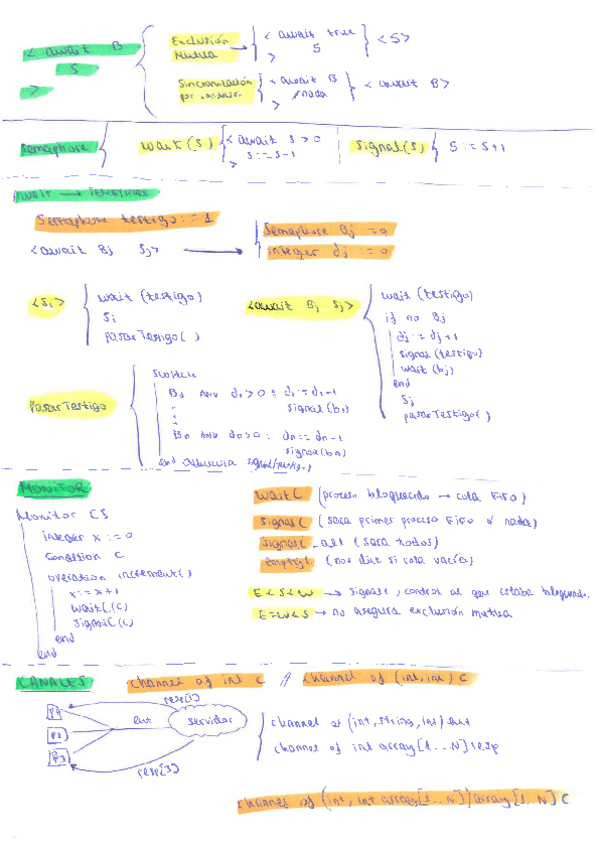 < await B
S
>
Exclusión
Mutua
< await true
S
>
<S>
Sincronización
por condición
< await B
nada
>
< await B>
Semaphore
wait(S)
< await S>0
S:=S-1
>
signal(S)
S:=S+1
Await → Semaphore
Semaphore testigo:= 1
<await Bj Sj>
Semaphore Bj :=0
integer dj :=0
<Si>
wait (testigo)
Si
pasarTestigo( )
<await Bj Sj>
wait (testigo)
if no Bj
dj := dj+1
signal (testigo)
wait (bj)
end
Sj
pasarTestigo( )
PasarTestigo
switch
B1 and d1>0 : d1:=d1-1
signal(b1)
Bn and dn>0 : dn:=dn-1
signal(bn)
end signal(testigo)
MONITOR
Monitor CS
integer x:=0
Condition C
operation increment()
x:=x+1
waitC(C)
signalC(c)
end
end
waitC (proceso bloqueado → cola FIFO)
signalC (saca primer proceso FIFO o nada)
signalC_all (saca todos)
emptyC (nos dice si cola vacía)
E<S<W → signalC, control al que estaba bloqueado.
E=W<S → no asegura exclusión mutua
CANALES
channel of int c
channel of (int,int) c
resp[1]
P1
P2
P3
Servidor
resp[3]
channel of (int,string,int)
channel of int array[1..N] resp
channel of (int, int array[1..N]) array[1..N] C